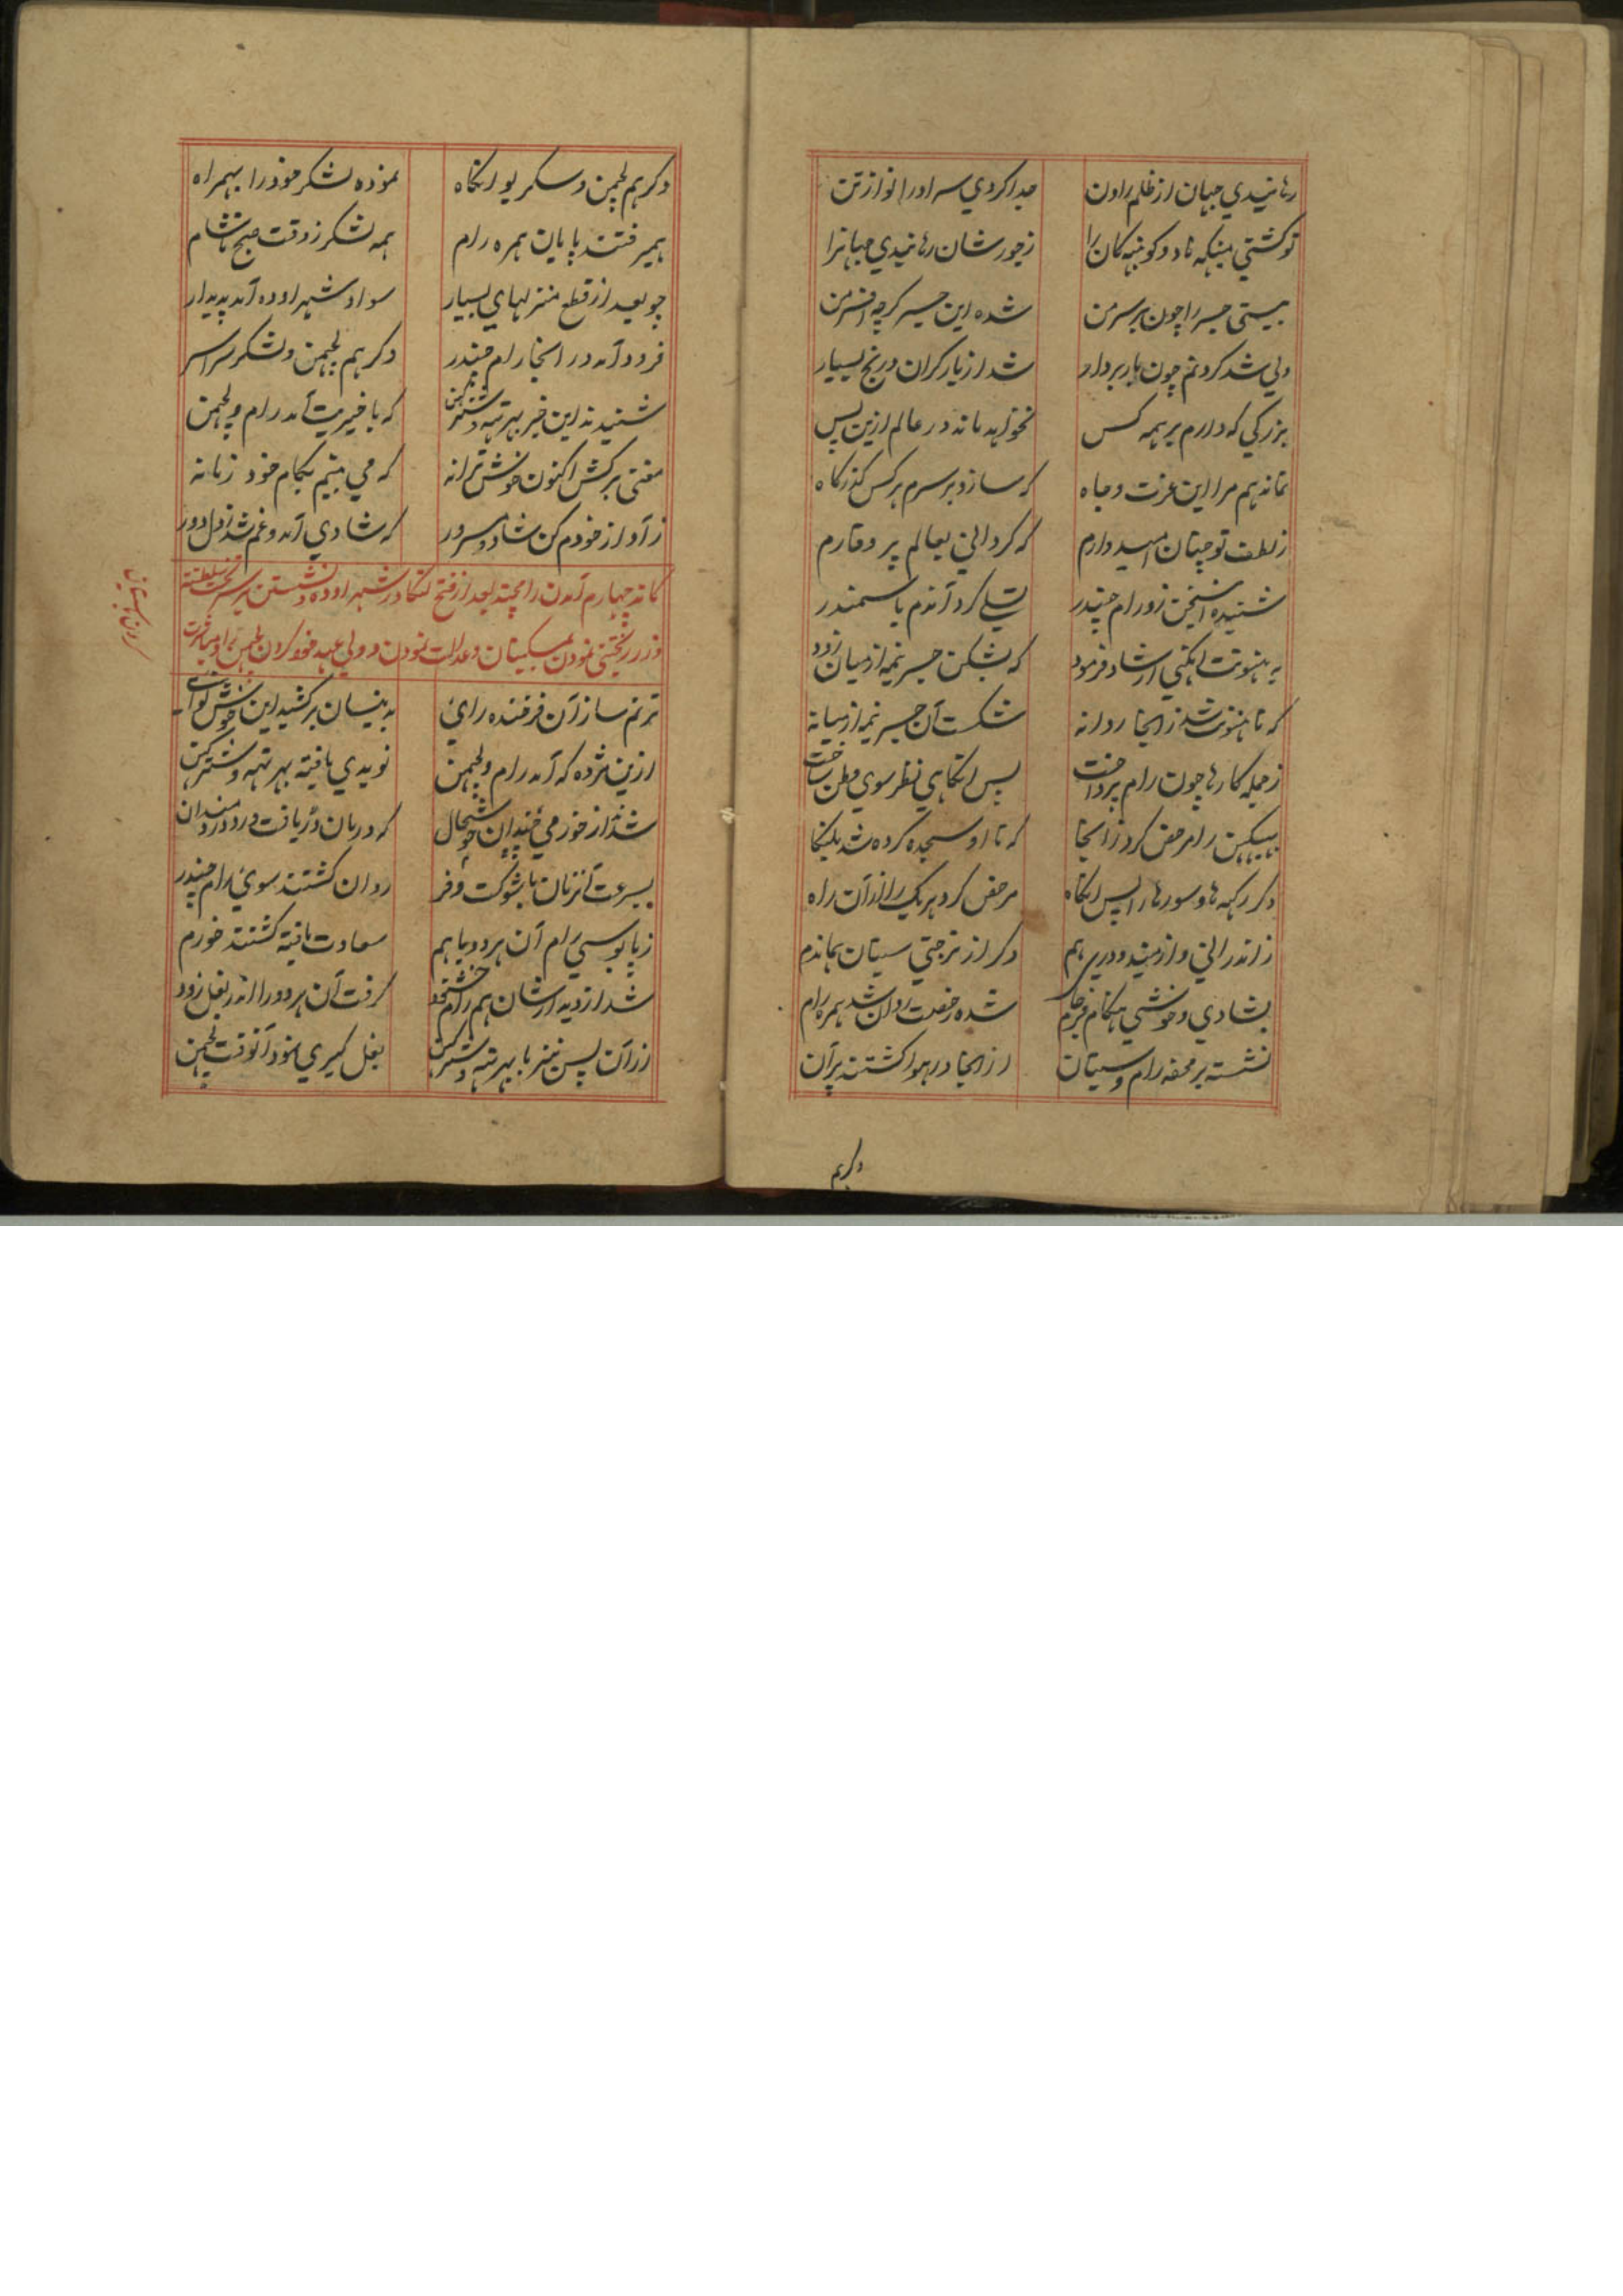 رهانیدي جهان از ظلم راون جدا کردي سر او را تو از تن
تو کشتي میکهه ناد و کونبهه کان را ز جور شان رهانیدي جهانرا
ببستی جسر را چون بر سر من شده این جسر کرچه افسر من
ولي شد کردنم چون باربردار شد از بار کران در رنج بسیار
بزرکي که دارم بر همه کس نخواهد ماند در عالم ازین پس
نماند هم مرا این عزت و جاه که سازد بر سرم هر کس کذرکاه
ز لطف تو چنان امید دارم که کرداني بعالم پر وقارم
شنیده این سخن زو رام چندر تسلي کرد آندم با سمندر
به هنونت انکهي ارشاد فرمود که بشکن جسر نیمه از میان زود
که تا هنونت شد زانجا روانه شکست آن جسر نیمه از میانه
ز جمله کارها چون رام پرداخت پس انکاهي نظر سوي وطن ساخت
ببیکهن را مرخص کرد زانجا که تا او سجده کرده شد بلنکا
دکر رکهه ها و سورها را پس انکاه مرخص کرد هر یک را از آن راه
ز اندراني و از میندودري هم دکر از ترجتي سیتان بماندم
بشادي و خوشي هنکام فرجام شده رخصت روان شد همره رام
نشسته بر محفه رام و سیتان از انجا در هوا کشتند پران
دکر هم
دکر هم لچهمن و سکریو انکاه نموده لشکر خود را بهمراه
همیرفتند پایان همره رام همه لشکر ز وقت صبح تا شام
چو بعد از قطع منزلهاي بسیار سواد شهر اوده آمد پدیدار
فرود آمد در انجا رام چندر دکر هم لچهمن و لشکر سراسر
شنیدند این خبر بهرتهه و شترکهن که با خیریت آمد رام و لچهمن
مغنی برکش اکنون خوش ترانه که مي بینم بکام خود زمانه
ز آواز خودم کن شاد و مسرور که شادي آمد و غم شد ز دل دور
کاند چهارم آمدن رامچند بعد از فتح لنکا در شهر اوده و نشستن بر سریر تخت سلطنت
و زرریزي بخشي نمودن بمسکینان و عدالت نمودن و ولي عهد خود کردن لچهمن را
ترنم ساز آن فرخنده رائ بدینسان برکشید این خوش نوائ
ازین مژده که آمد رام و لچهمن نویدي یافته بهرتهه و شترکهن
شدند از خورمي چندان خوشحال که درمان دریافت درد دردمندان
بسرعت آنزمان با شوکت و فر روان کشتند سوي رام چندر
ز پابوسي رام آن هر دو باهم سعادت یافته کشتند خورم
شد از دیدارشان هم رام خشنود کرفت آن هر دو را اندر بغل زود
از آن پس نیز با بهرتهه و شترکهن بغل کیري نمود آنوقت لچهمن